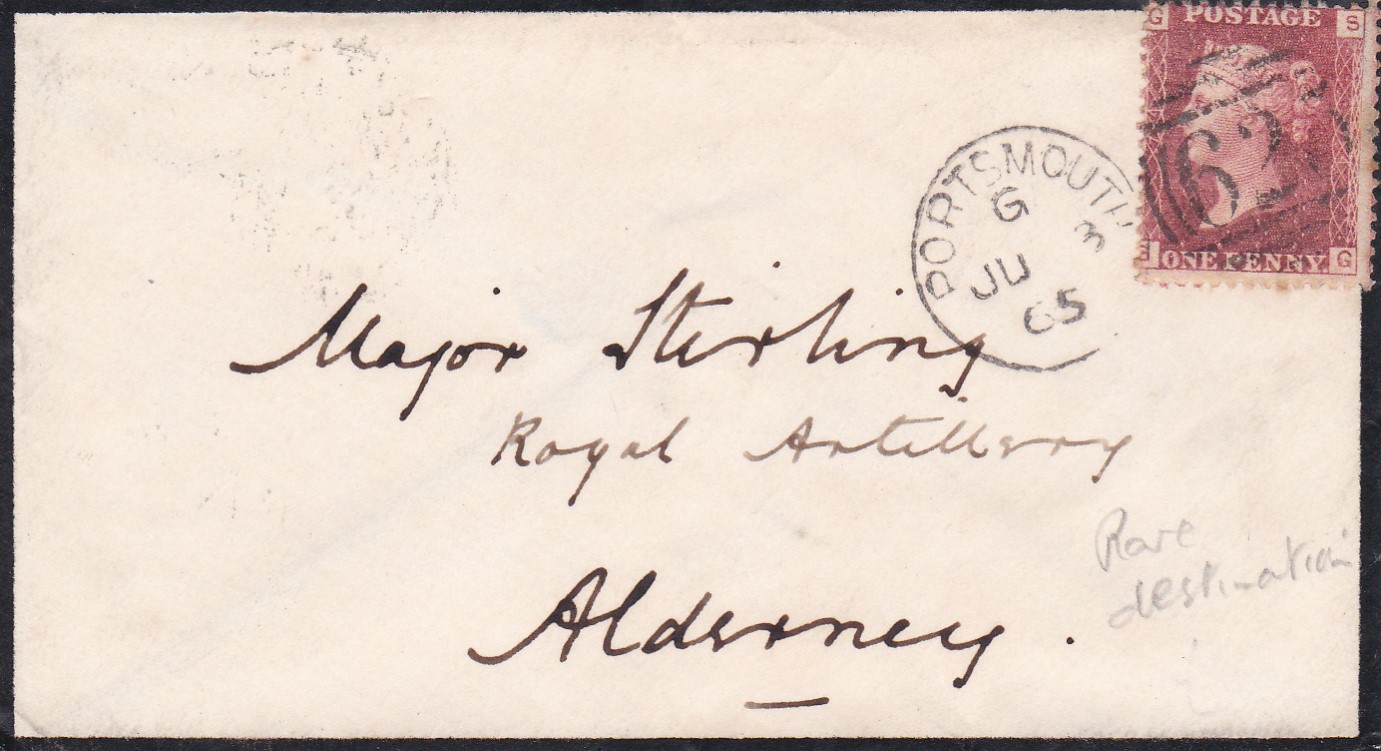 G POSTAGE S
ONE PENNY G
62
PORTSMOUTH
G
3
JU
65
Major Sterling
Royal Artillery
Alderney.
Rare
destination